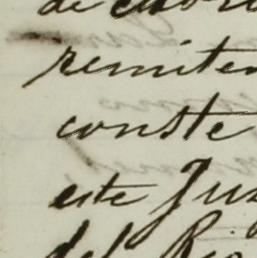 de
remiten
conste
este Juz
del Rio